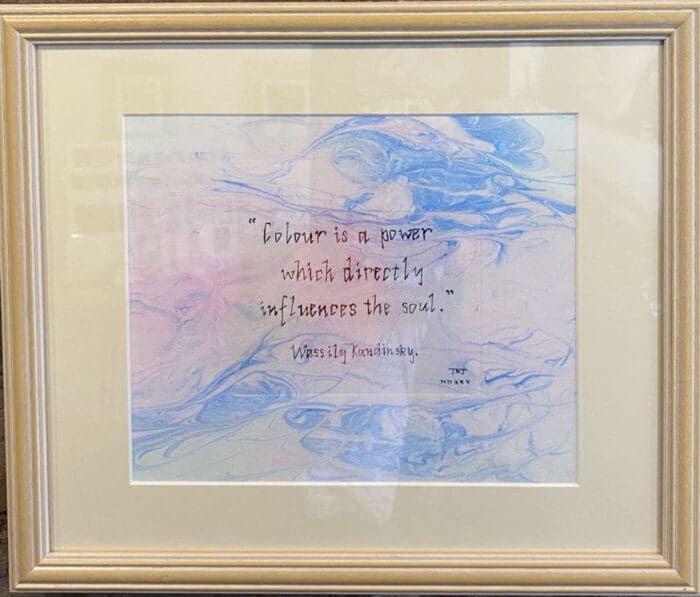 "Colour is a power
which directly
influences the soul."
Wassily Kandinsky.
JBJ
MMXXV